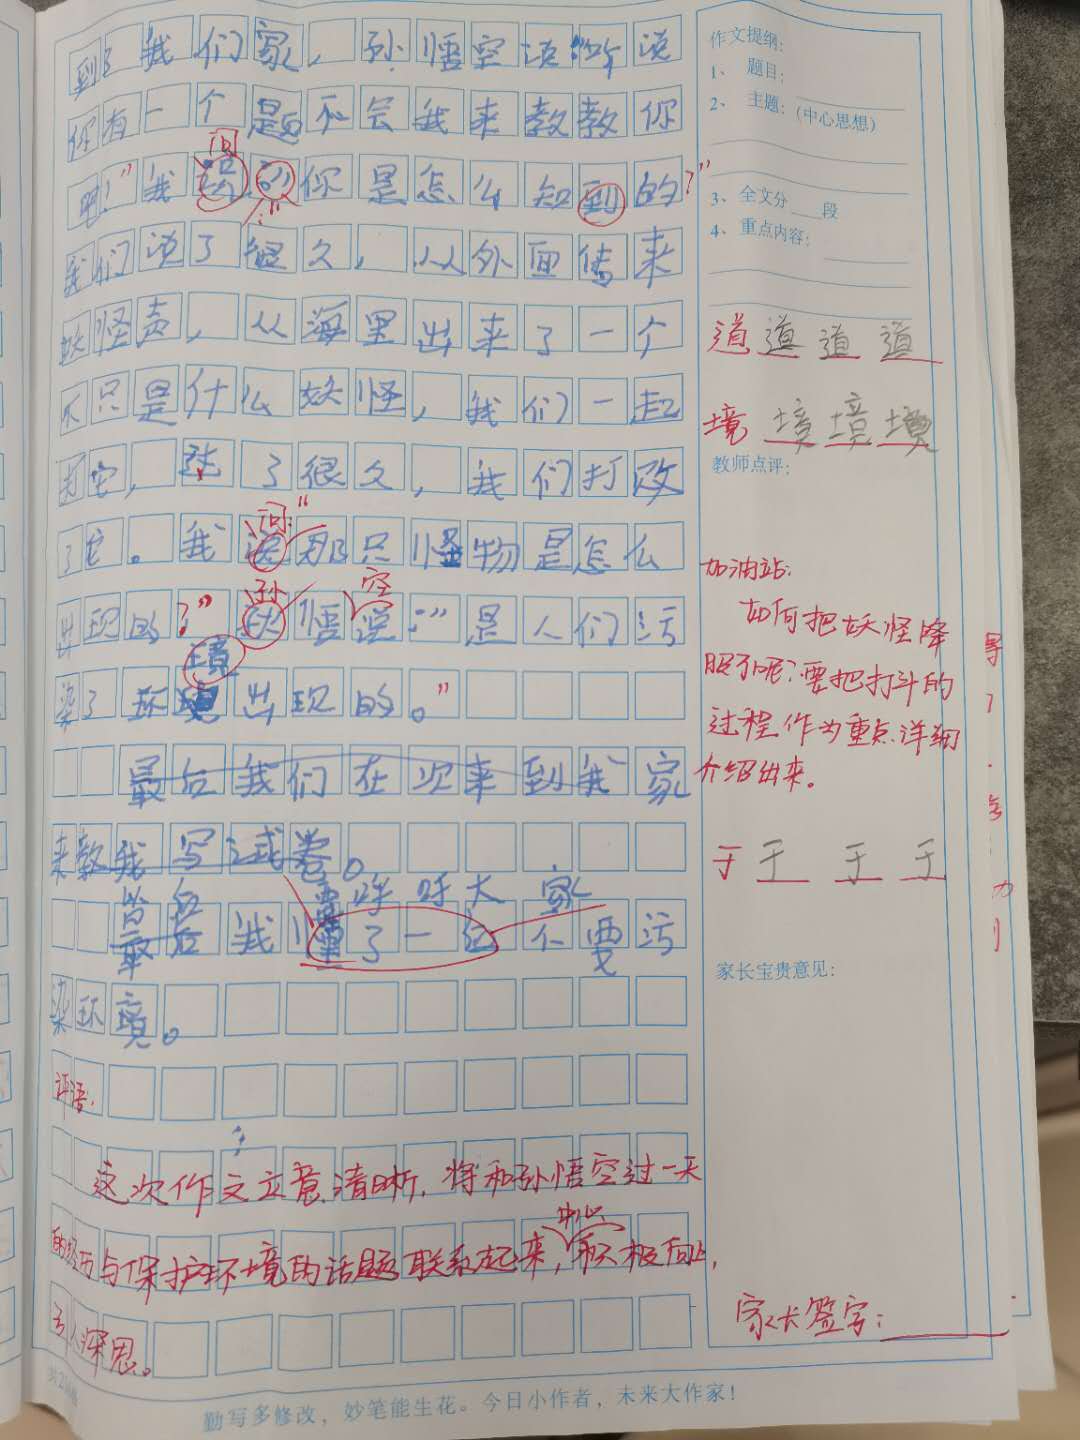 到了我们家，孙悟空语哞说
你有一个题不会我来教教你
吧！”我说的你是怎么知到的
问
：“
？”
我们说了很久，从外面传来
妖怪声，从海里出来了一个
不只是什么妖怪，我们一起
打它，过了很久，我们打败
了它。我说那只怪物是怎么
问：“
出现的？”孙悟说：”是人们污
孙
空
染了环境出现的。”
境
最后我们在次来到我家
来教我写试卷。
最后我懂了一己不要污
呼吁大家
染环境。
评语：
这次作文立意清晰，将和孙悟空过一天
的经历与保护环境的话题联系起来，中心积极向上，
引人深思。
勤写多修改，妙笔能生花。今日小作者，未来大作家！
作文提纲：
1、题目：
2、主题：（中心思想）
3、全文分____段
4、重点内容：
道 道 道 道
境 境 境 境
教师点评：
加油站：
如何把妖怪降
服了呢？要把打斗的
过程作为重点详细
介绍出来。
于 于 于 于
家长宝贵意见：
家长签字：